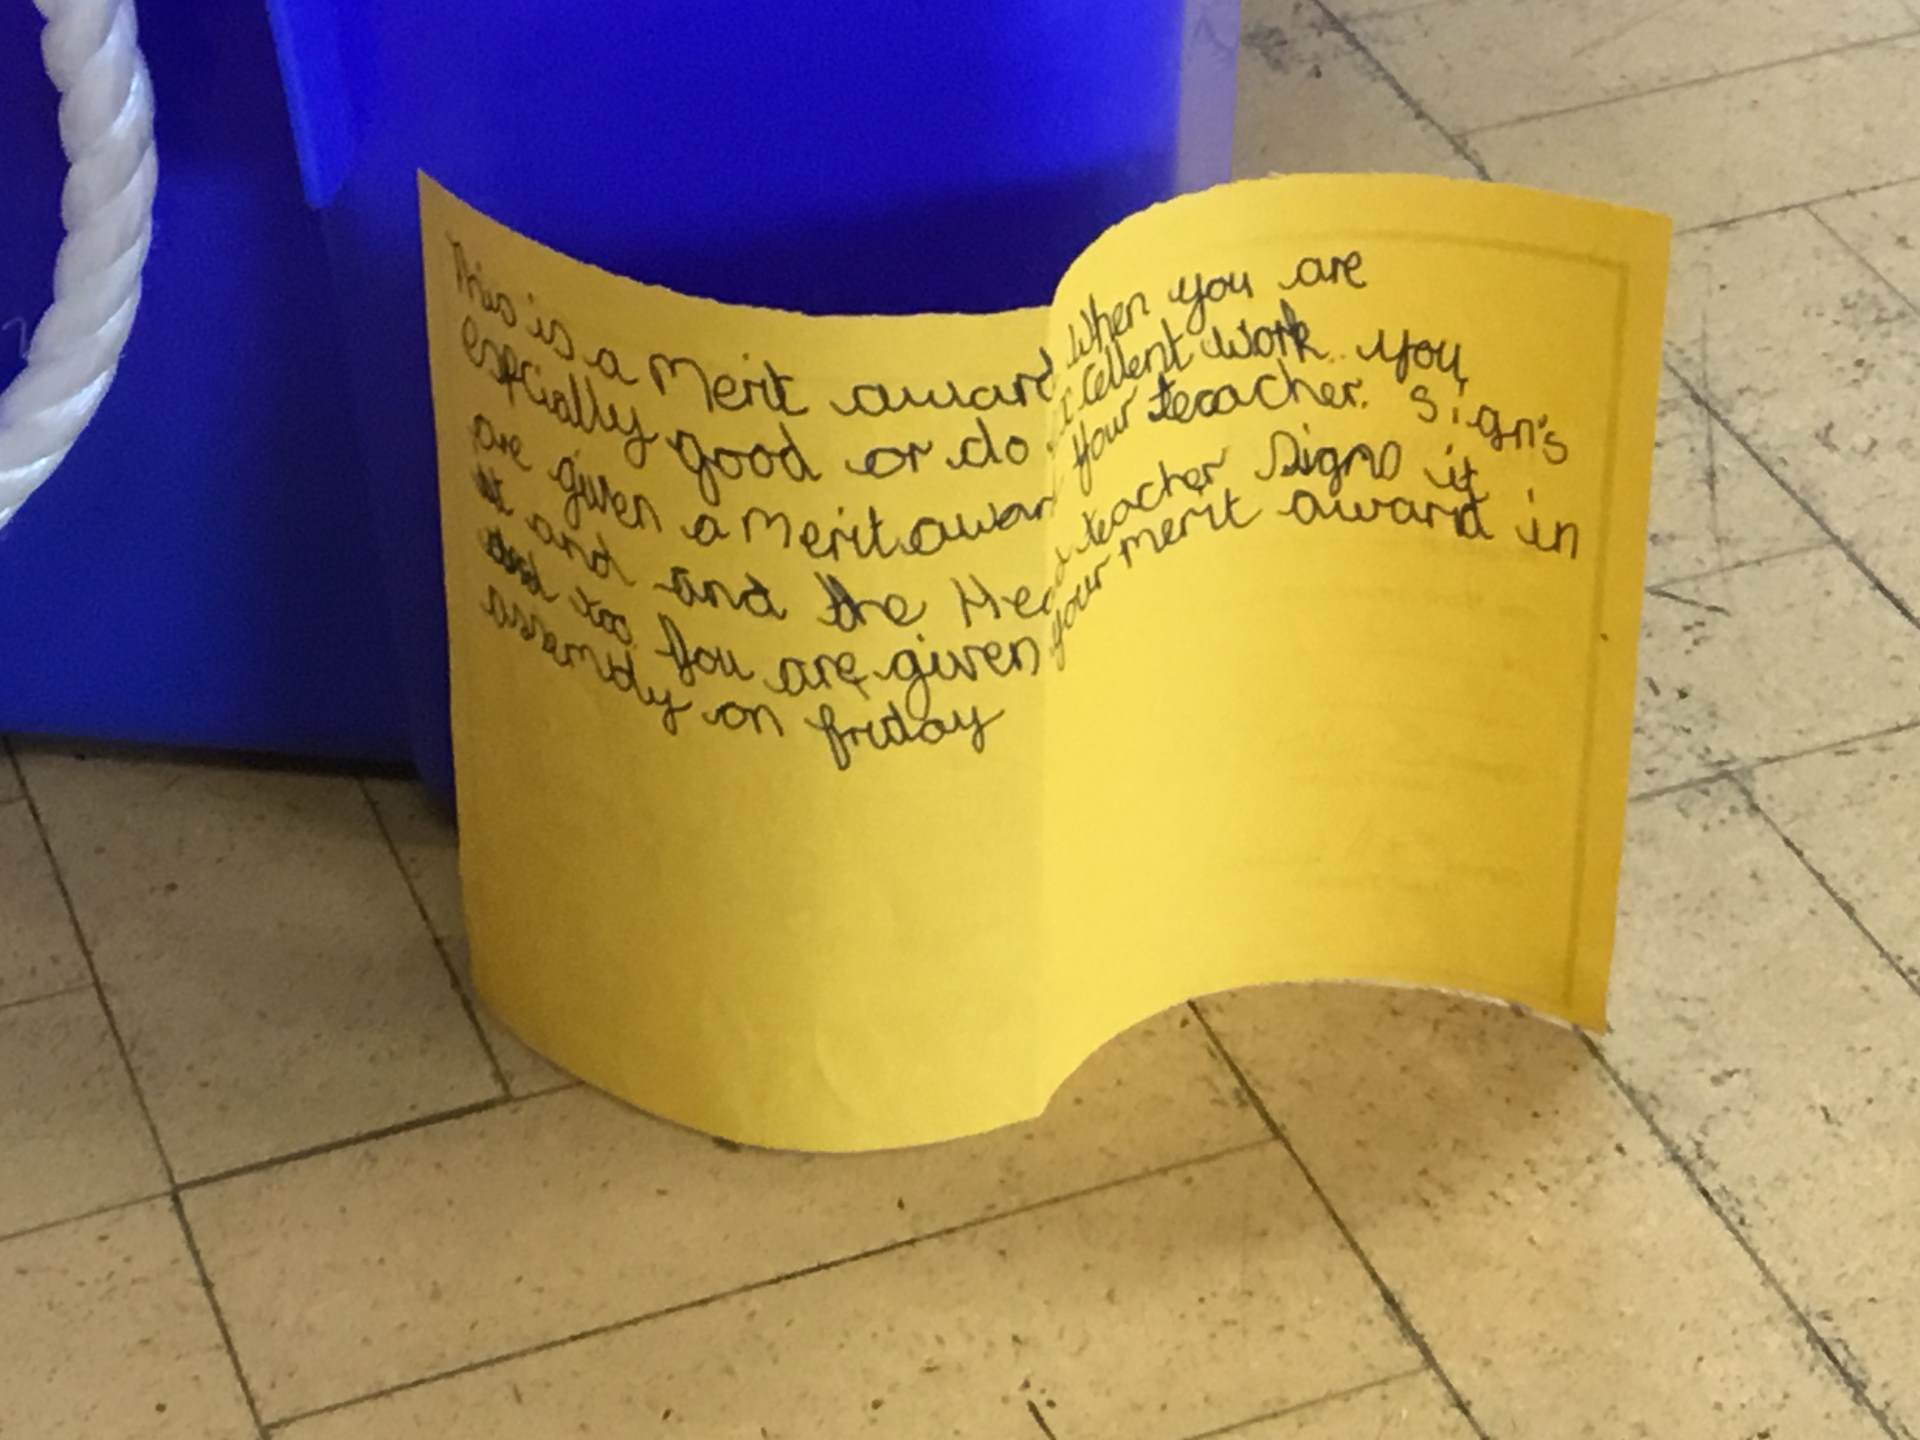 This is a Merit award When you are
espcially good or do excellent work. You
are given a Merit.award Your teacher. sign's
it and and the Head teacher signs it
too. You are given your merit award in
assembly on friday